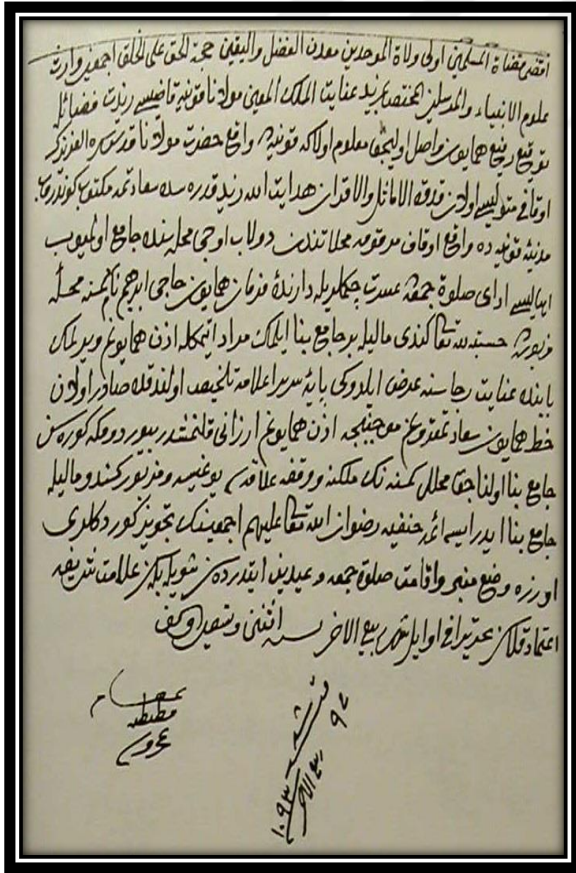 اقضى قضاة المسلمين اولى ولاة الموحدين معدن الفضل واليقين حجة الحق على الخلق اجمعين وارث
علوم الانبياء والمرسلين المختص بمزيد عنايت الملك المعين مولانا قونيه قاضيسى زيدت فضائله
توقيع رفيع همايون واصل اوليجق معلوم اولا كه قونيه ده واقع حضرت مولانا قدس سره العزيزك
اوقافى متوليسى اولان قدوة الاماثل والاقران هدايت الله زيد قدره سده سعادتمه مكتوب كوندروب
مدينۀ قونيه ده واقع اوقاف مرقومه محلاتندن دولاب اوجى محله سنده جامع اولميوب
اهاليسى اداى صلوة جمعه ده عسرت چكملريله دارندۀ فرمان همايون حاجى ابراهيم نام كمسنه محلۀ
مزبوره ده حسبة لله تعالى كندى ماليله بر جامع بنا ايلمك مراد ايتمكله اذن همايونم ويرلمك
بابنده عنايت رجاسنه عرض ايلدوكى پايۀ سرير اعلامه تلخيص اولندقده صادر اولان
خط همايون سعادتمقرونم موجبنجه اذن همايونم ارزانى قلنمشدر بيوردمكه كوره سن
جامع بنا اولناجق محللر كمسنه نك ملكنه ووقفه علاقه سى يوغيسه ومزبور كندو ماليله
جامع بنا ايدرايسه ائمۀ حنفيه رضوان الله تعالى عليهم اجمعينك تجويز كوردكلرى
اوزره وضع منبر واقامت صلوة جمعه وعيدين ايتدره سن شويله بله سن علامت شريفه
اعتماد قلاسن تحريرا فى اوايل شهر ربيع الاخر لسنه اثنى وتسعين والف
بمقام
قسطنطنيه
المحروسه
ربيع الاخر
١٠٩٣